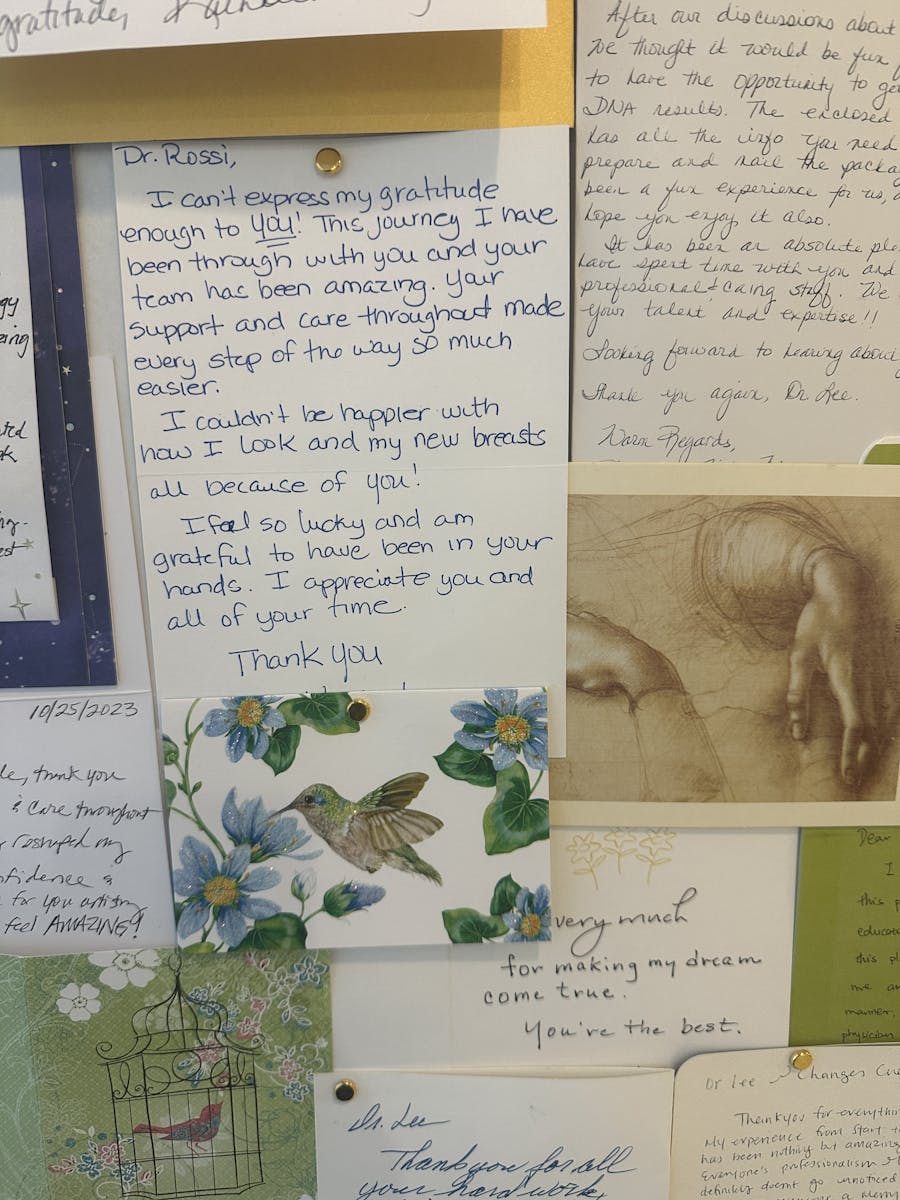 gratitude,
Dr. Rossi,
I can't express my gratitude
enough to you! This journey I have
been through with you and your
team has been amazing. Your
support and care throughout made
every step of the way so much
easier.
I couldn't be happier with
how I look and my new breasts
all because of you!
I feel so lucky and am
grateful to have been in your
hands. I appreciate you and
all of your time.
Thank you
After our discussions about
we thought it would be fun
to have the opportunity to
DNA results. The enclosed
has all the info you need
prepare and mail the
been a fun experience for us,
hope you enjoy it also.
It has been an absolute
have spent time with you and
professional + caring staff. We
your talent and expertise!!
Looking forward to hearing about
Thank you again, Dr Lee.
Warm Regards,
10/25/2023
thank you
& care throughout
reshaped my
&
for you artistry
feel AMAZING!
very much
for making my dream
come true.
You're the best.
Dear
I
this
this
me
manner,
physician
Dr. Lee
Thank you for all
your hard work,
Dr Lee Changes
Thank you for everything
My experience from start
has been nothing but amazing
Everyone's professionalism
definitely doesnt go unnoticed